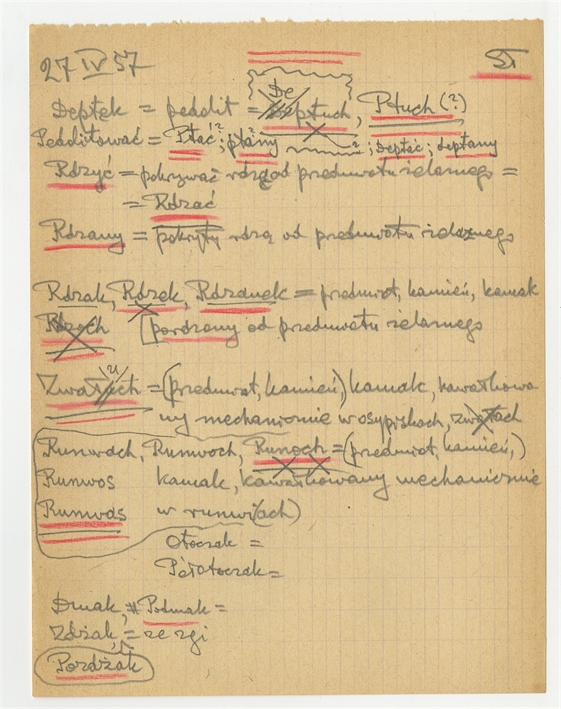 27 IV 57 ST
De
Deptek = peddit = Deptuch, Ptuch (?)
Pedditować = Ptac ?; ptany ? ; deptać ; deptany
Rdzyć = pokrywać rdzą od przedmiotu żelaznego =
= Rdzać
Rdzany = pokryty rdzą od przedmiotu żelaznego
Rdzak, Rdzek, Rdzanek = przedmiot, kamień, kamak
Rdzoch (pordzany od przedmiotu żelaznego
= (przedmiot, kamień,) kamak, kawałkowa
ny mechanicznie w osypiskach,
Rumwach, Rumwoch, Rumoch = (przedmiot, kamień,)
Rumwos kamak, kawałkowany mechanicznie
Rumwas w rumwi(ach)
Otoczak =
Półotoczak =
Dmak, Podmak =
Zdżak, = ze zgi
Pozdżak